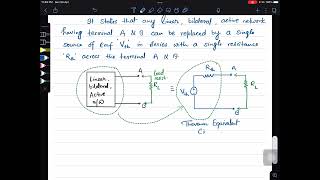 It states that any linear, bilateral, active network
having terminal A & B can be replaced by a single
source of Emf Vth in series with a single resistance
'Rth' across the terminal A & B.
Linear,
bilateral,
Active
n/w
A
load
RL
B
≡
Rth
A
Vth
RL
B
Thevenin Equivalent
Ci